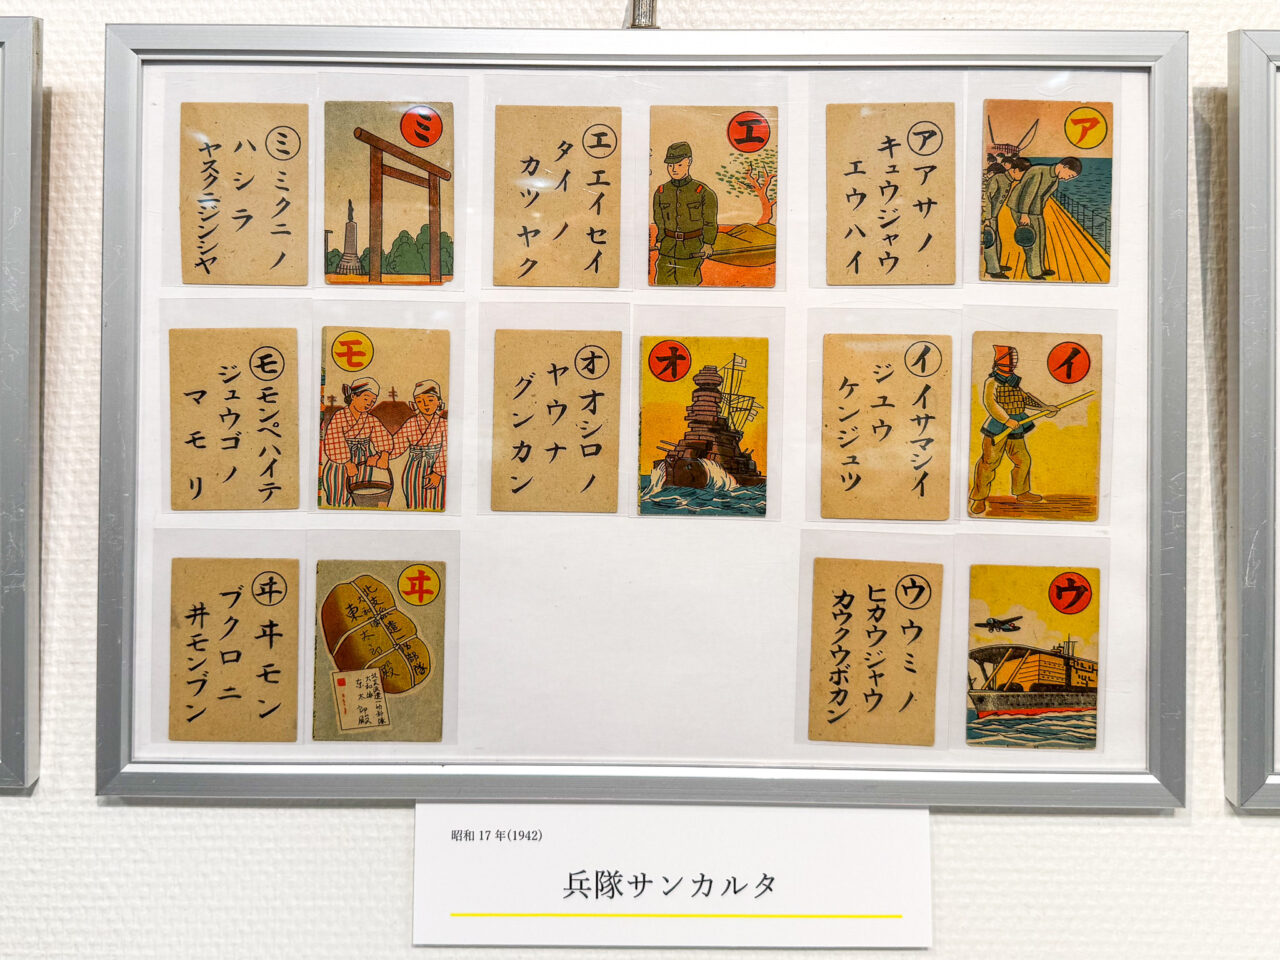 ミ
ミクニノ
ハシラ
ヤスクニジンシヤ
ミ
エ
エイセイ
タイノ
カツヤク
エ
ア
アサノ
キュウジャウ
エウハイ
ア
モ
モンペハイテ
ジュウゴノ
マモリ
モ
オ
オシロノ
ヤウナ
グンカン
オ
イ
イサマシイ
ジユウ
ケンジュツ
イ
ヰ
ヰモン
ブクロニ
井モンブン
ヰ
東太郎殿
ウ
ウミノ
ヒカウジャウ
カウクウボカン
ウ
昭和 17 年(1942)
兵隊サンカルタ